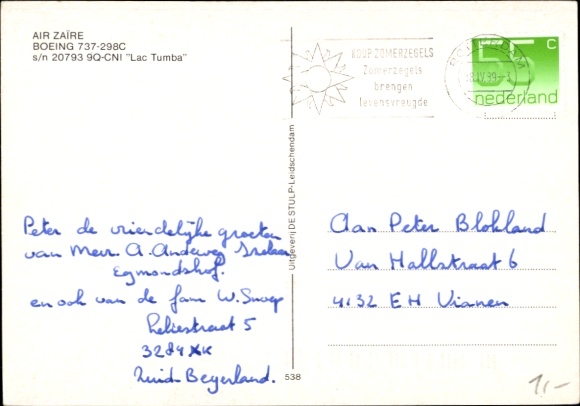 AIR ZAÏRE
BOEING 737-298C
s/n 20793 9Q-CNI "Lac Tumba"
KOOP ZOMERZEGELS
Zomerzegels
brengen
levensvreugde
55 c
nederland
Uitgeverij DE STULP-Leidschendam
Peter de vriendelijke groeten
van Mevr. A. Andeweg
Egmondshof.
en ook van de fam W. Snoep
Leliestraat 5
3284 XK
Zuid-Beyerland.
Aan Peter Blokland
Van Hallstraat 6
4132 EH Vianen
538
1,-